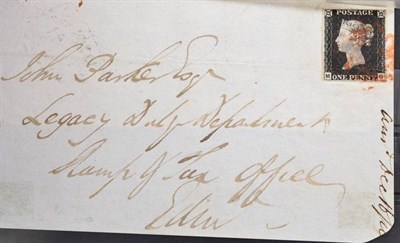 POSTAGE
M ONE PENNY
John Parker Esqr
Legacy Duty Department
Stamp & Tax Office
Edinr